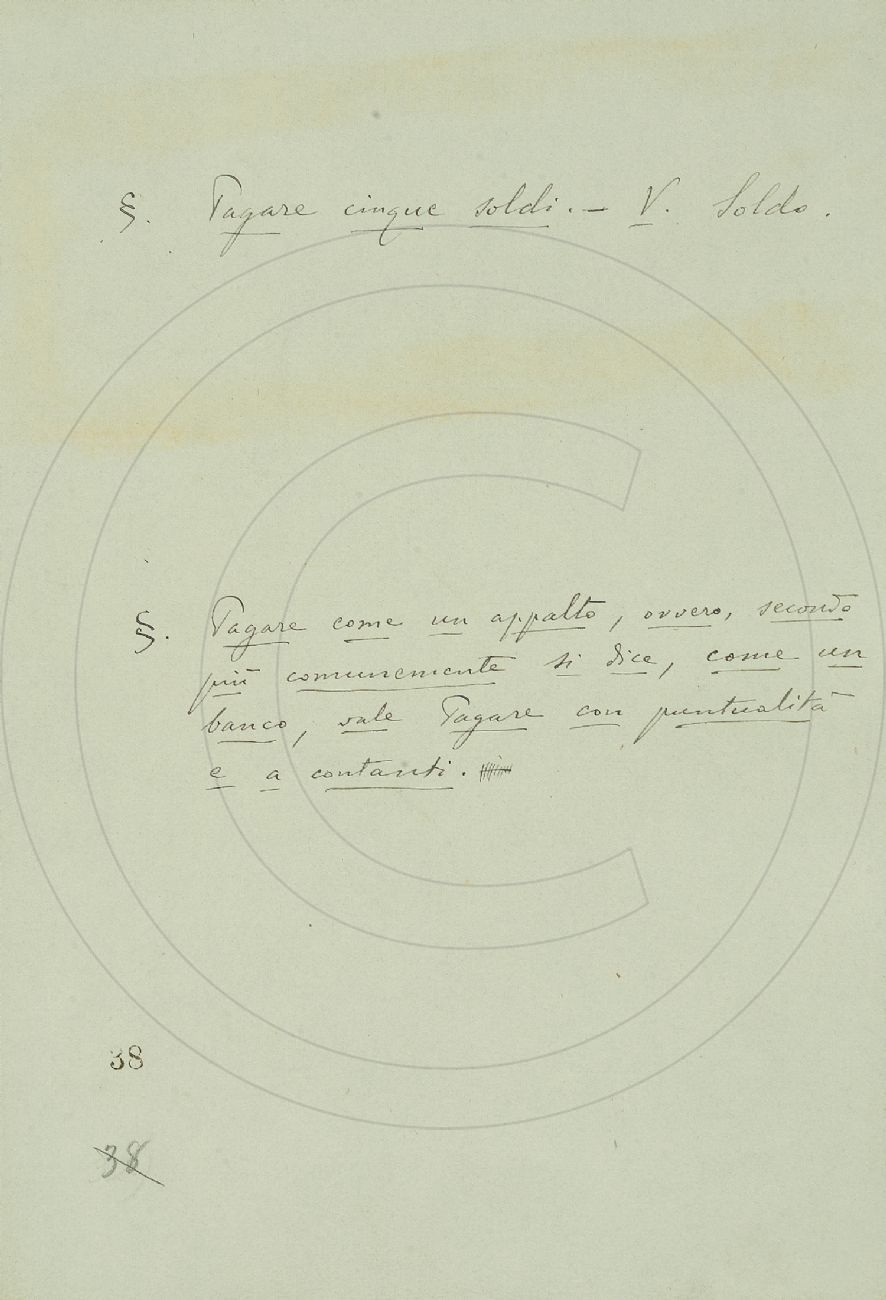 §. Pagare cinque soldi. — V. Soldo.
§. Pagare come un appalto, ovvero, secondo
più comunemente si dice, come un
banco, vale Pagare con puntualità
e a contanti.
38
38